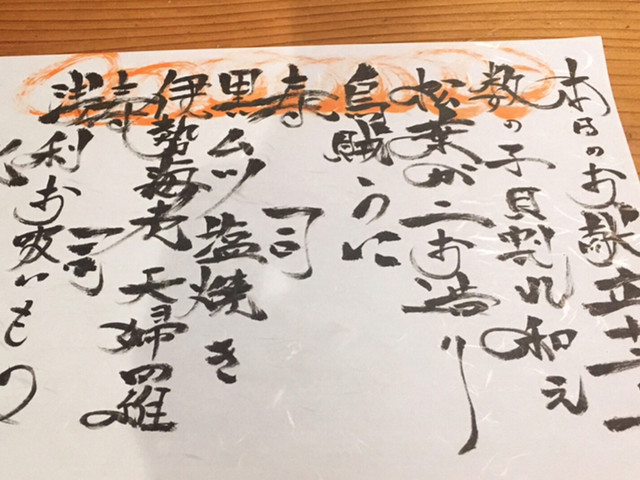 本日のお献立
数の子貝割れ和え
松葉がニお造り
烏賊うに
寿司
黒ムツ 塩焼き
伊勢海老 天婦羅
寿司
浅利お吸いもの